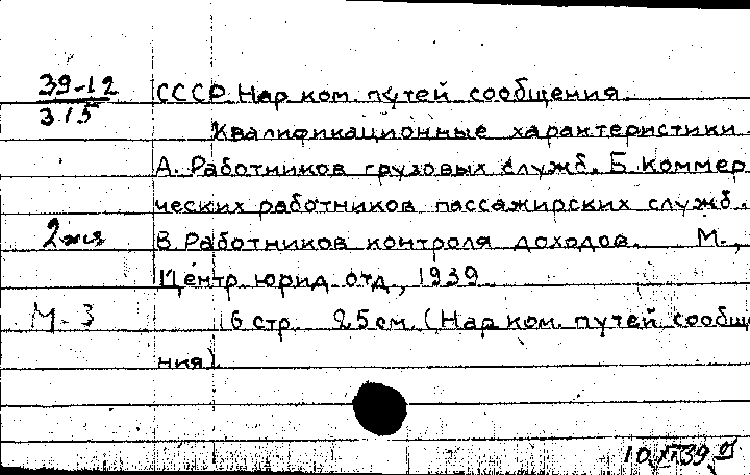 39-12
315
СССР. Нар. ком. путей сообщения.
Квалификационные характеристики.
А. Работников грузовых служб. Б. Коммер
ческих работников пассажирских служб.
2 экз
В. Работников контроля доходов. М.,
Центр. юрид. отд., 1939.
М-3
16 стр. 25 см. (Нар. ком. путей сообще
ния).